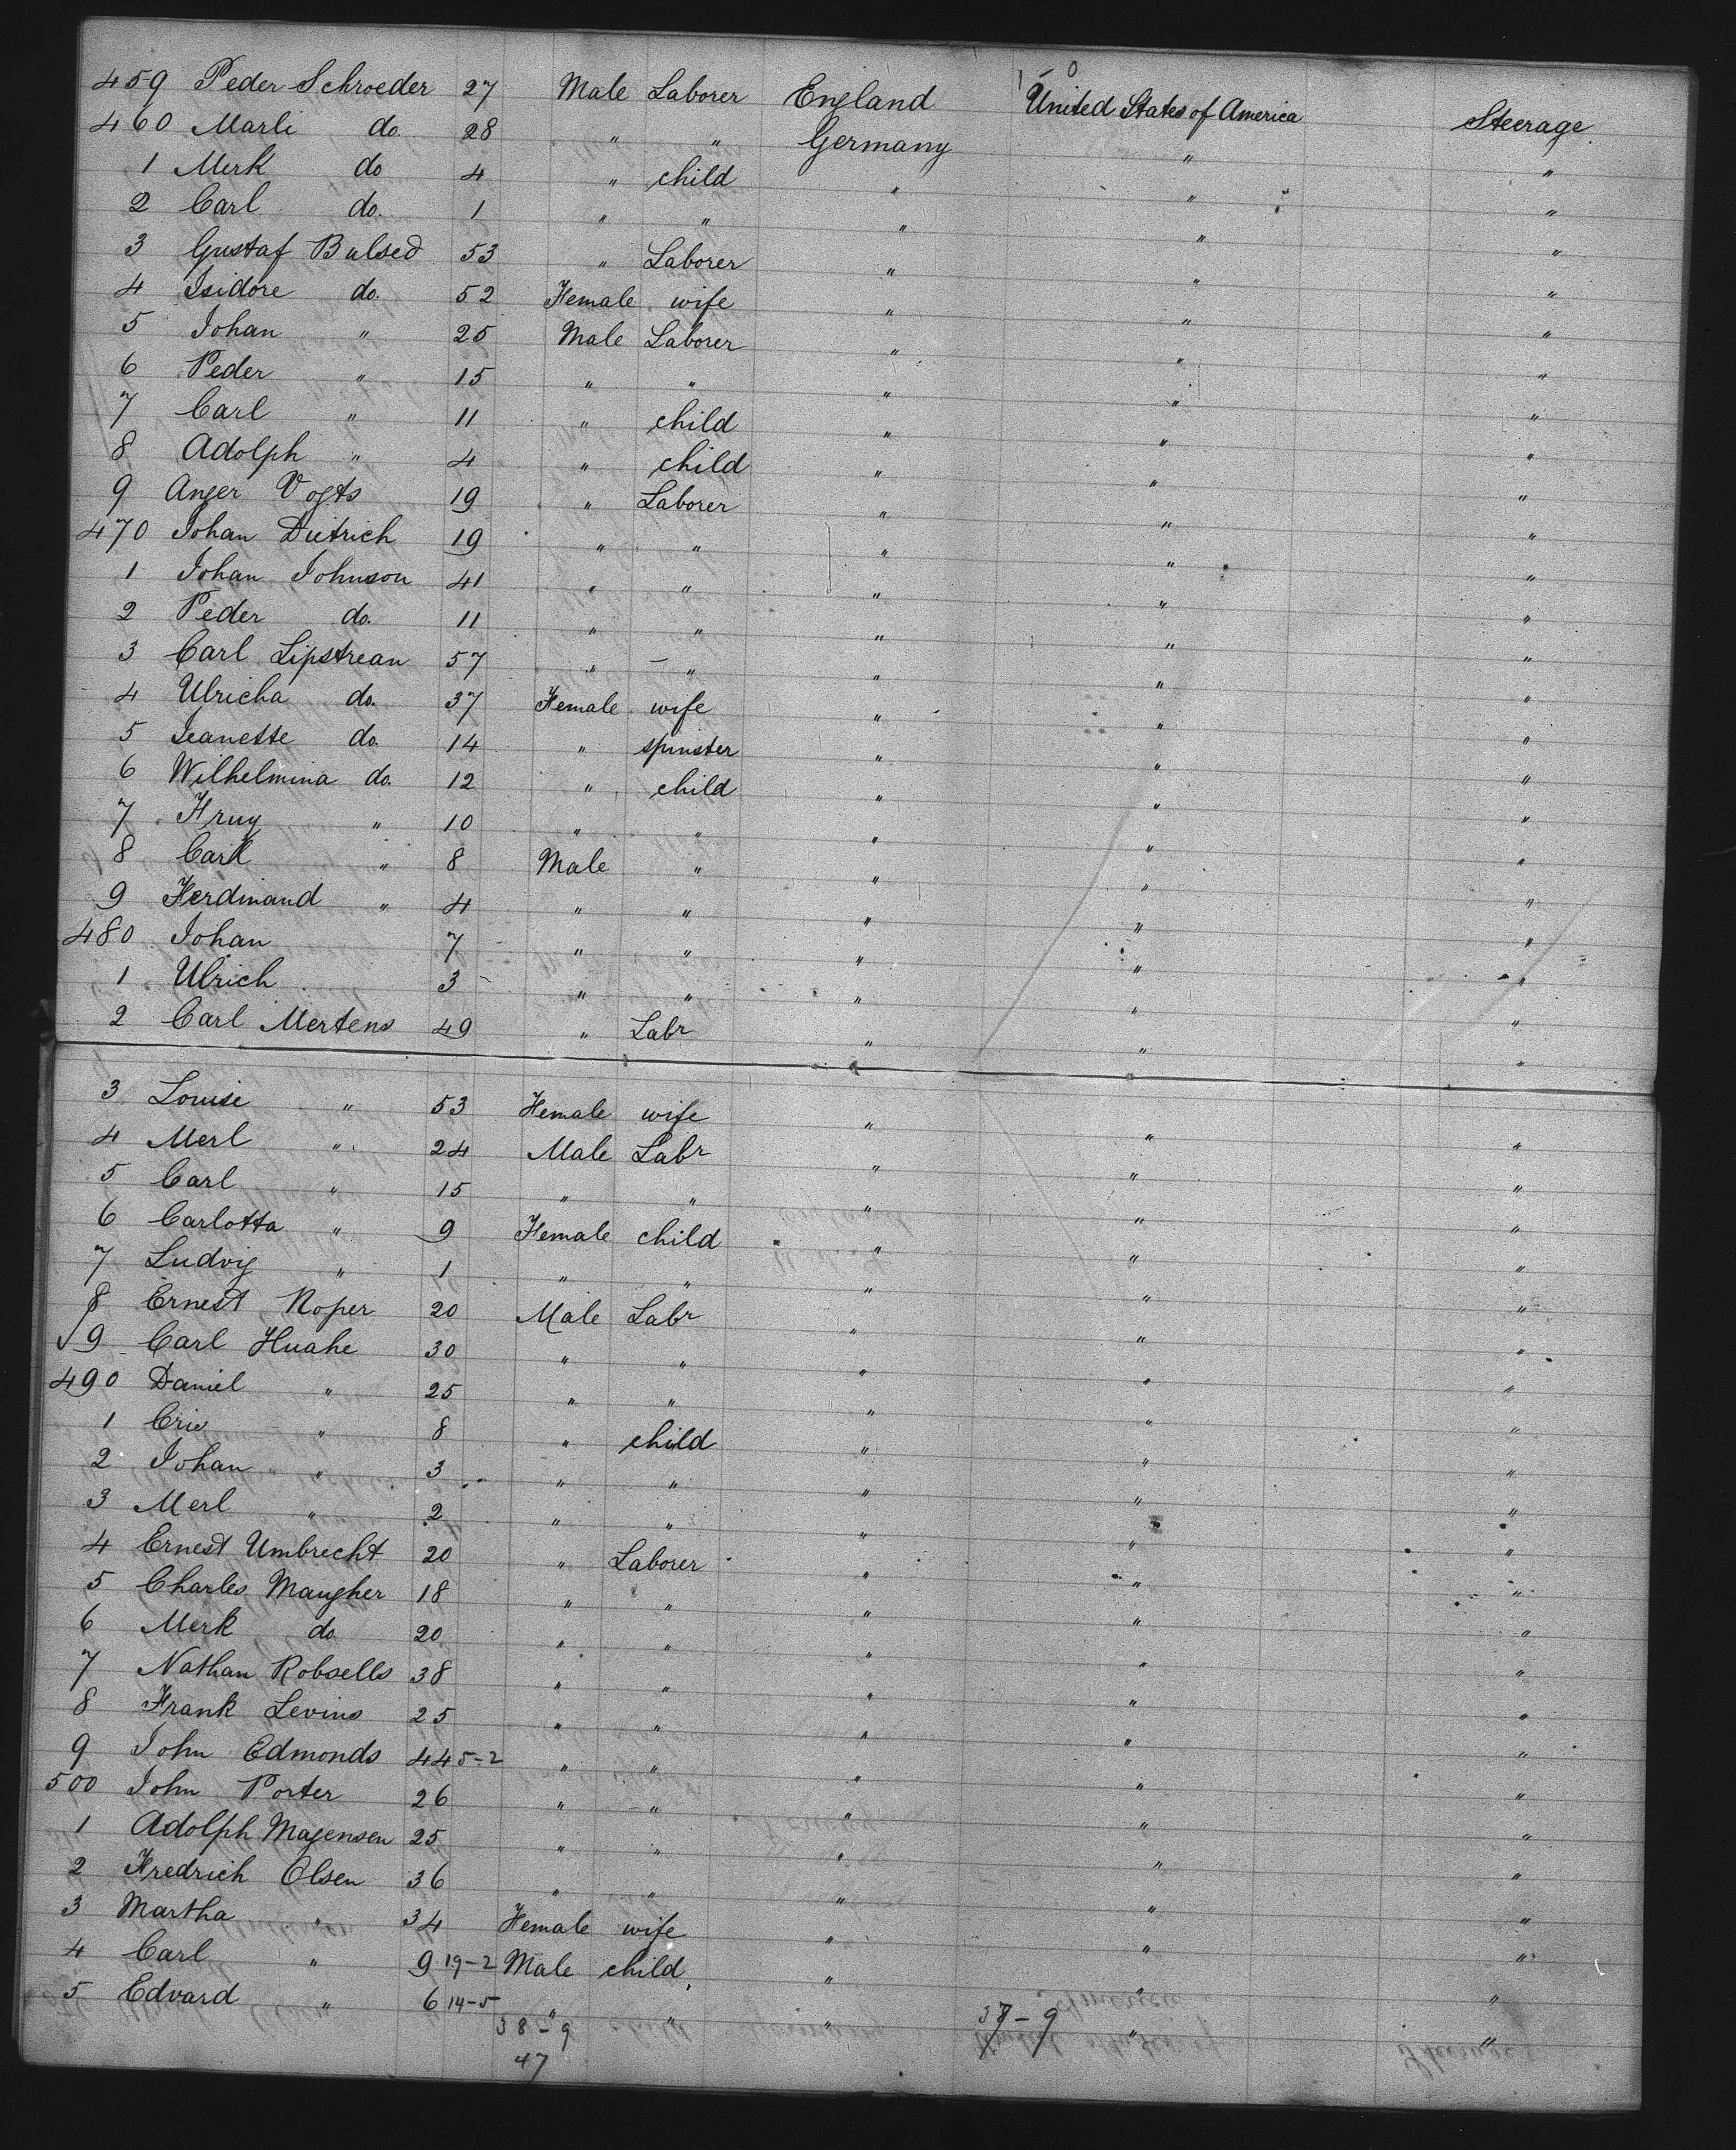 1 - 0
459 Peder Schroeder 27 Male Laborer England United States of America Steerage
460 Marli do 28 " " Germany " "
1 Merk do 4 " child " " "
2 Carl do. 1 " " " " "
3 Gustaf Bulsed 53 " Laborer " " "
4 Isidore do. 52 Female wife " " "
5 Johan " 25 Male Laborer " " "
6 Peder " 15 " " " " "
7 Carl " 11 " child " " "
8 Adolph " 4 " child " " "
9 Anger Vogts 19 " Laborer " " "
470 Johan Dietrich 19 " " " " "
1 Johan Johnson 41 " " " " "
2 Peder do. 11 " " " " "
3 Carl Lipstrean 57 " " " " "
4 Ulricha do. 37 Female wife " " "
5 Jeanette do. 14 " spinster " " "
6 Wilhelmina do. 12 " child " " "
7 " 10 " " " " "
8 Carl " 8 Male " " " "
9 Ferdinand " 4 " " " " "
480 Johan 7 " " " " "
1 Ulrich 3 " " " " "
2 Carl Mertens 49 " Labr " " "
3 Louise " 53 Female wife " " "
4 Merl " 24 Male Labr " " "
5 Carl " 15 " " " " "
6 Carlotta " 9 Female child " " "
7 Ludvig " 1 " " " " "
8 Ernest Roper 20 Male Labr " " "
9 Carl Huahe 30 " " " " "
490 Daniel " 25 " " " " "
1 " 8 " child " " "
2 Johan " 3 " " " " "
3 Merl " 2 " " " " "
4 Ernest Umbrecht 20 " Laborer " " "
5 Charles Maugher 18 " " " " "
6 Merk do. 20 " " " " "
7 Nathan Robsells 38 " " " " "
8 Frank Levins 25 " " " " "
9 John Edmonds 44 5-2 " " " " "
500 John Porter 26 " " " " "
1 Adolph Magensen 25 " " " " "
2 Fredrich Olsen 36 " " " " "
3 Martha " 34 Female wife " " "
4 Carl " 9 19-2 Male child " " "
5 Edvard " 6 14-5 " " " " "
38-9 37-9
47